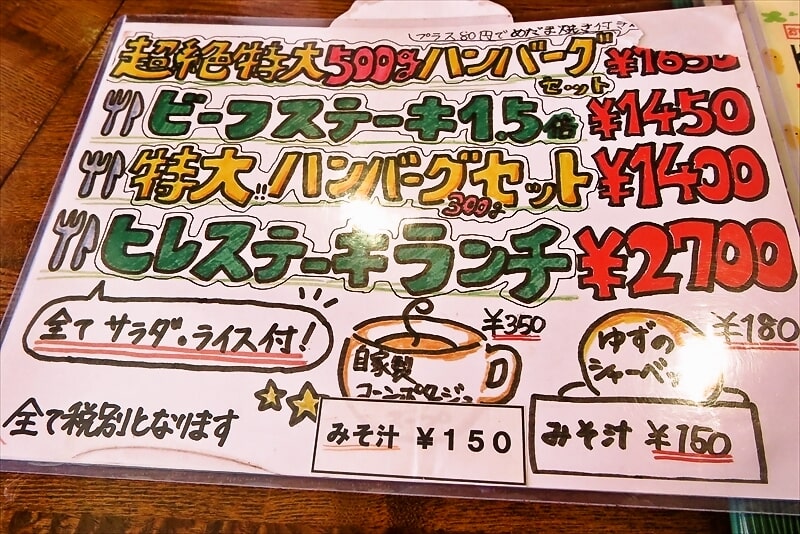 プラス80円でめだま焼き付き
超絶特大500gハンバーグ
セット ¥1850
ビーフステーキ1.5倍 ¥1450
特大!!ハンバーグセット ¥1400
300g
ヒレステーキランチ ¥2700
全てサラダ・ライス付!
自家製
コーンポタージュ
¥350
ゆずの
シャーベット
¥180
全て税別となります
みそ汁 ¥150
みそ汁 ¥150